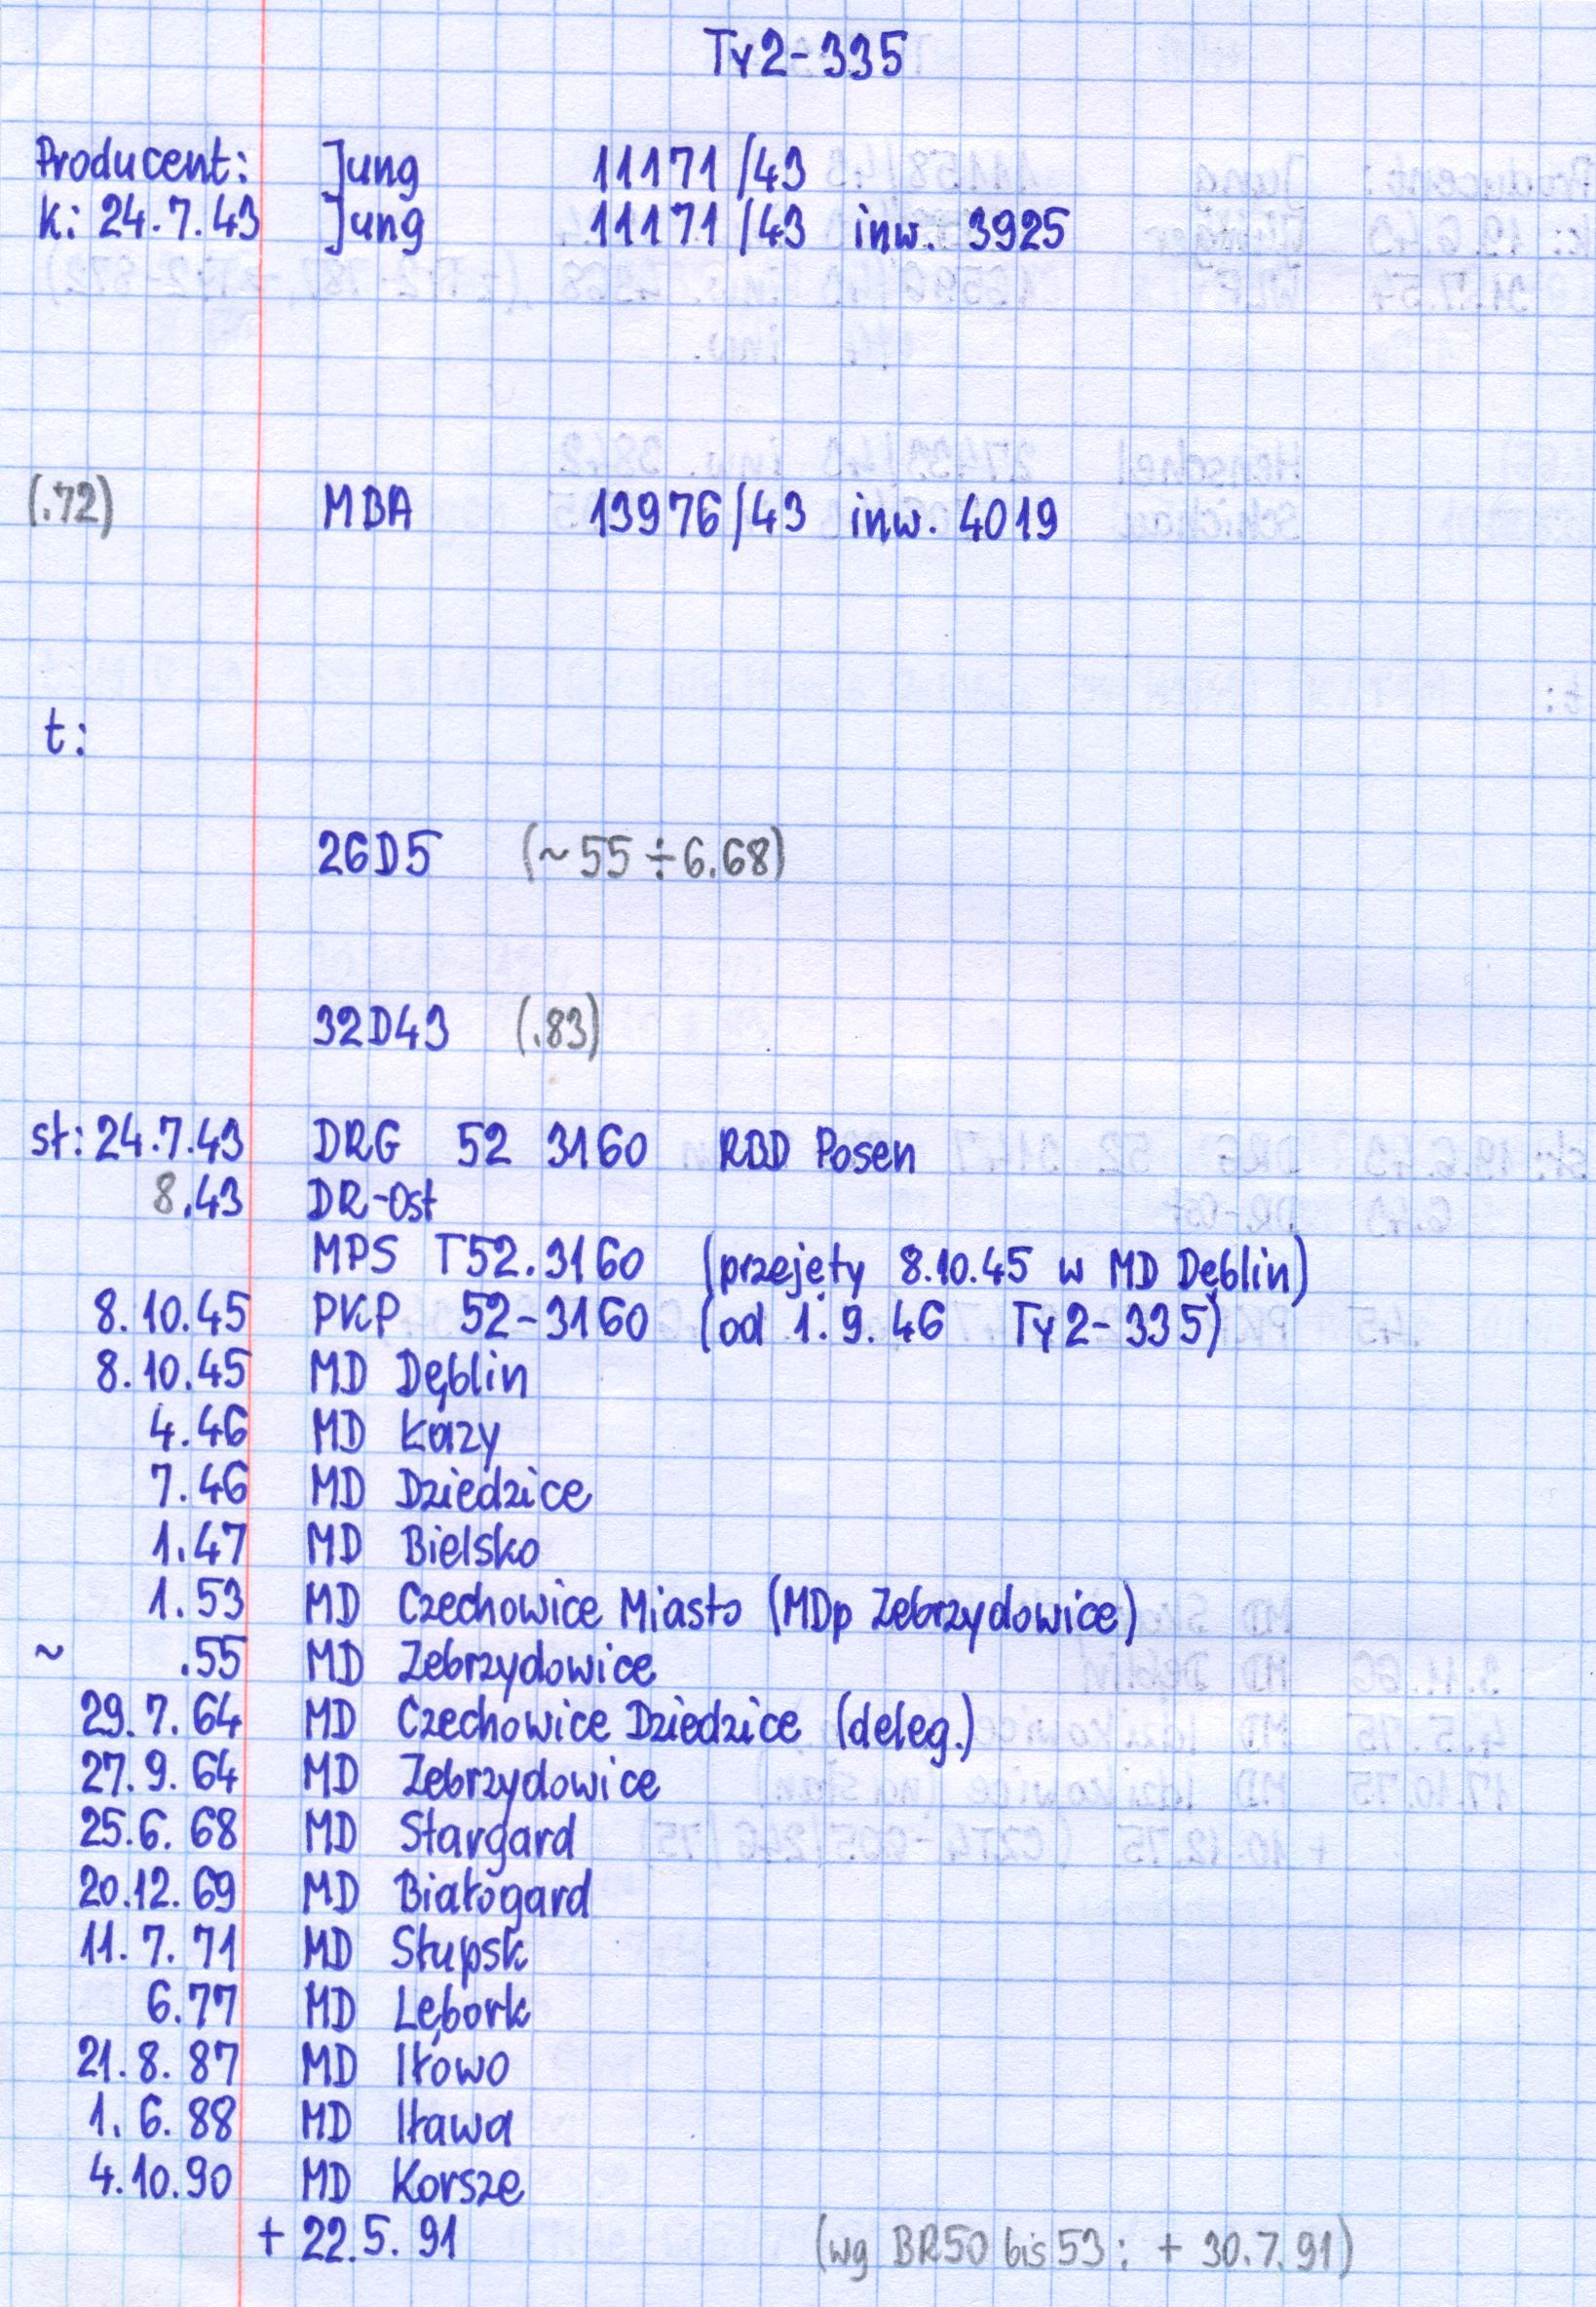 Ty2-335
Producent: Jung 11171/43
k: 24.7.43 Jung 11171/43 inw. 3925
(.72) MBA 13976/43 inw. 4019
t:
26D5 (~55÷6.68)
32D43 (.83)
st: 24.7.43 DRG 52 3160 RBD Posen
8.43 DR-Ost
MPS T52.3160 (przejęty 8.10.45 w MD Dęblin)
8.10.45 PKP 52-3160 (od 1.9.46 Ty2-335)
8.10.45 MD Dęblin
4.46 MD Łazy
7.46 MD Dziedzice
1.47 MD Bielsko
1.53 MD Czechowice Miasto (MDp Zebrzydowice)
~ .55 MD Zebrzydowice
29.7.64 MD Czechowice Dziedzice (deleg.)
27.9.64 MD Zebrzydowice
25.6.68 MD Stargard
20.12.69 MD Białogard
11.7.71 MD Słupsk
6.77 MD Lębork
21.8.87 MD Iłowo
1.6.88 MD Iława
4.10.90 MD Korsze
+ 22.5.91 (wg BR50 bis 53: + 30.7.91)